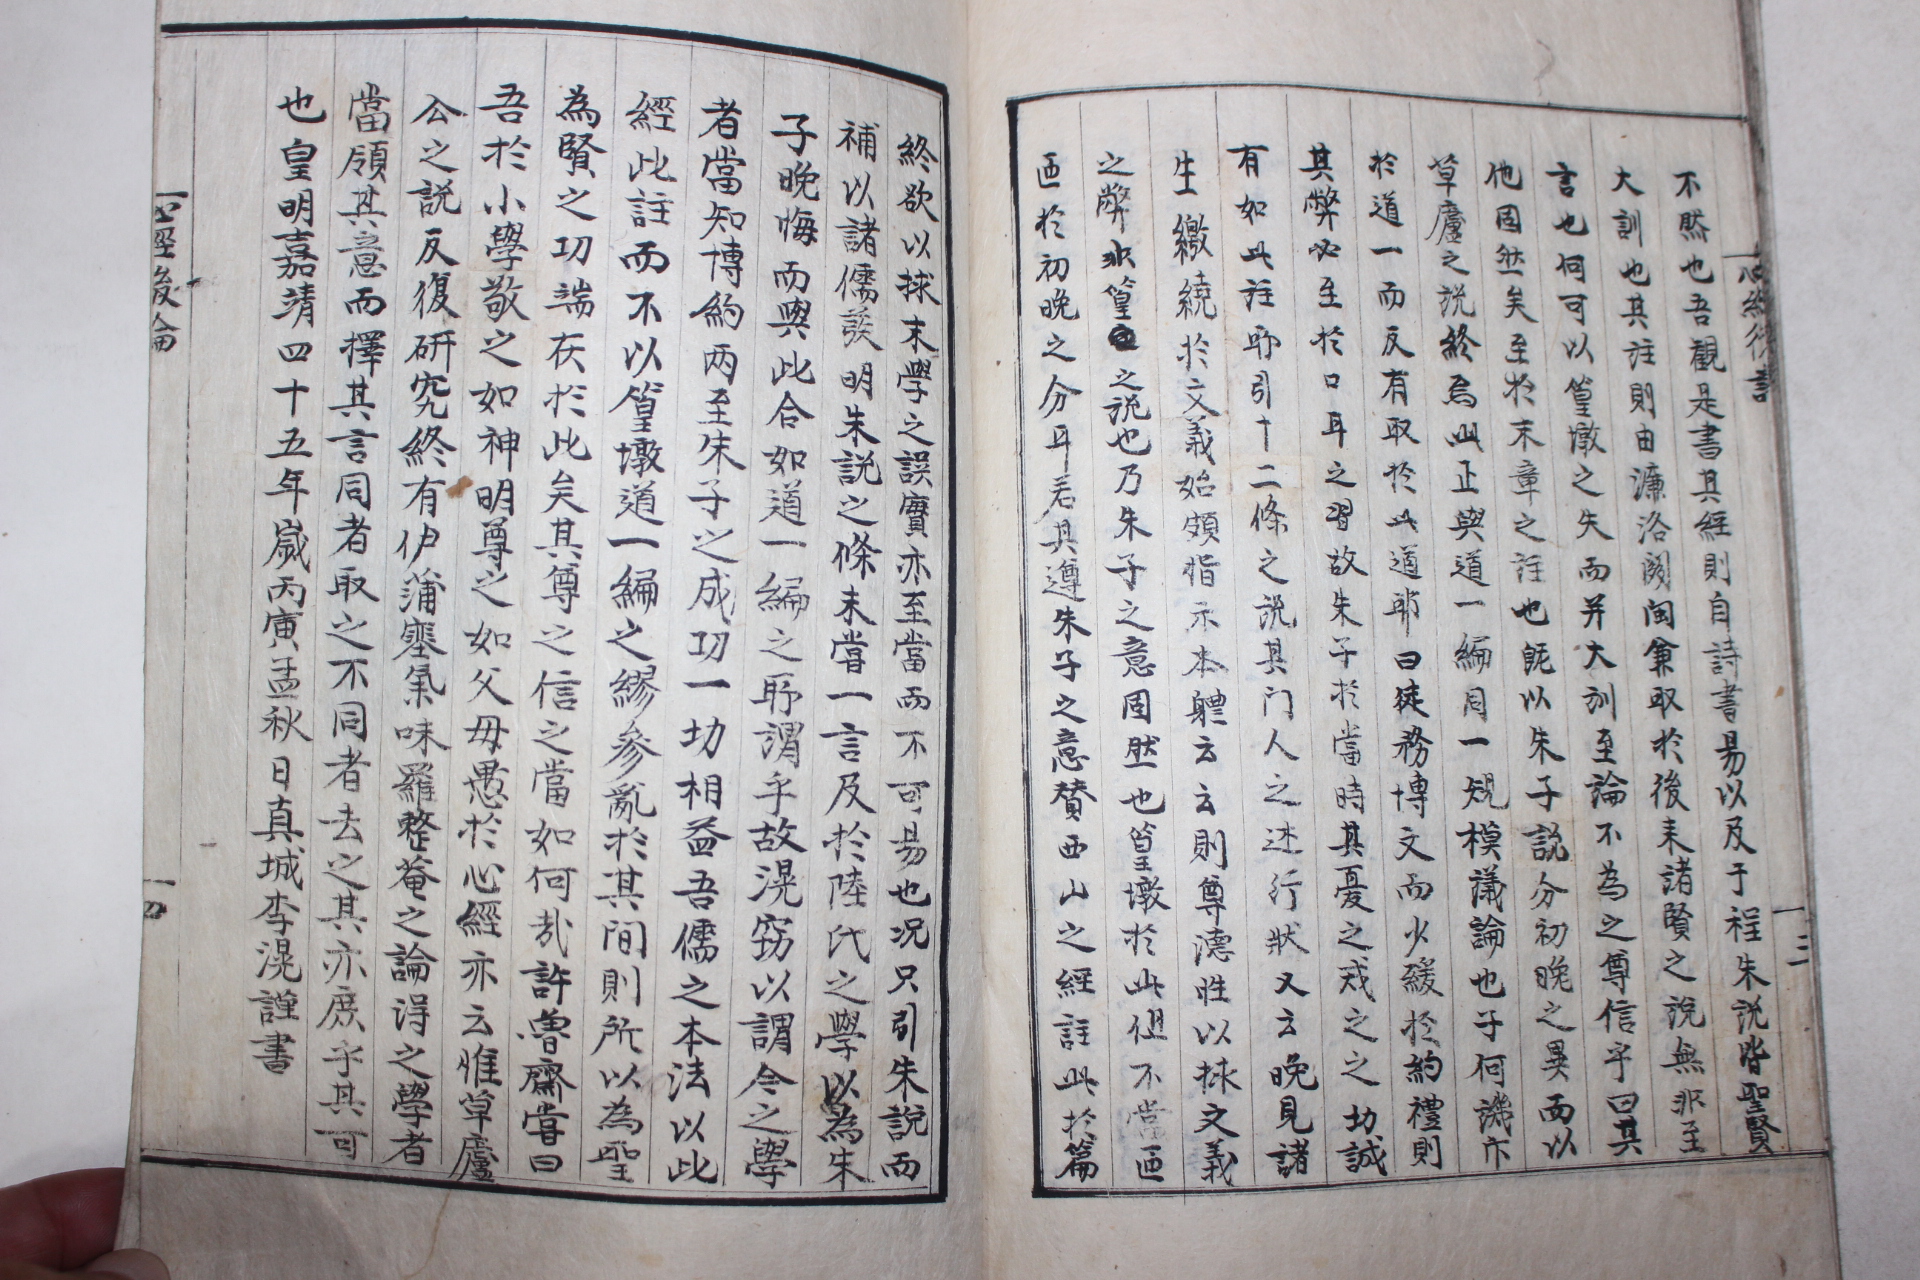 心經後書
三
不然也吾觀是書其經則自詩書易以及于程朱說皆聖賢
大訓也其註則由濂洛關閩兼取於後來諸賢之說無非至
言也何可以篁墩之失而并大訓至論不為之尊信乎曰其
他固然矣至於末章之註也旣以朱子說分初晚之異而以
草廬之說終焉此正與道一編同一規模議論也子何譏卞
於道一而反有取於此道耶曰徒務博文而少緩於約禮則
其弊必至於口耳之習故朱子於當時其憂之戒之之切誠
有如此註所引十二條之說其门人之述行狀又云晚見諸
生繳繞於文義始頗指示本軆云云則尊德性以捄文義
之弊非篁之說也乃朱子之意固然也篁墩於此但不當區
區於初晚之分耳若其遵朱子之意賛西山之經註此於篇
終欲以捄末學之誤實亦至當而不可易也况只引朱說而
補以諸儒發明朱說之條未嘗一言及於陸氏之學以為朱
子晚悔而與此合如道一編之所謂乎故滉窃以謂今之學
者當知博約兩至朱子之成功一功相益吾儒之本法以此
經此註而不以篁墩道一編之繆參亂於其间則所以為聖
為賢之功端在於此矣其尊之信之當如何哉許魯齋嘗曰
吾於小學敬之如神明尊之如父母愚於心經亦云惟草廬
公之說反復研究終有伊蒲塞氣味羅整菴之論得之學者
當領其意而擇其言同者取之不同者去之其亦庶乎其可
也皇明嘉靖四十五年歲丙寅孟秋日真城李滉謹書
心經後論
四